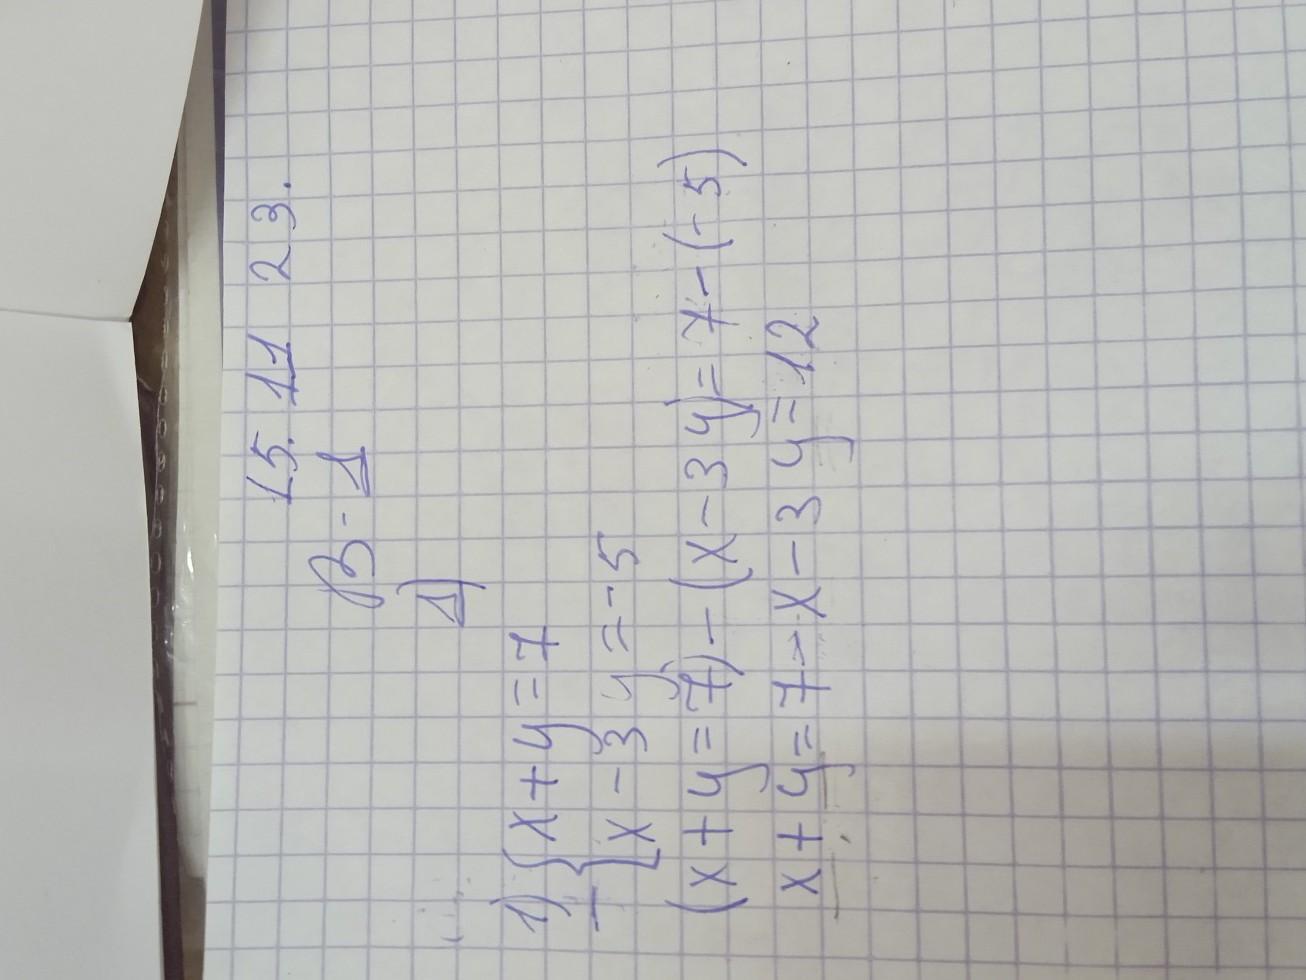 15. 11 23.
В-1
1)
1) { x + y = 7
– { x - 3y = -5
(x + y = 7) - (x - 3y) = 7 - (-5)
x + y = 7 - x - 3y = 12